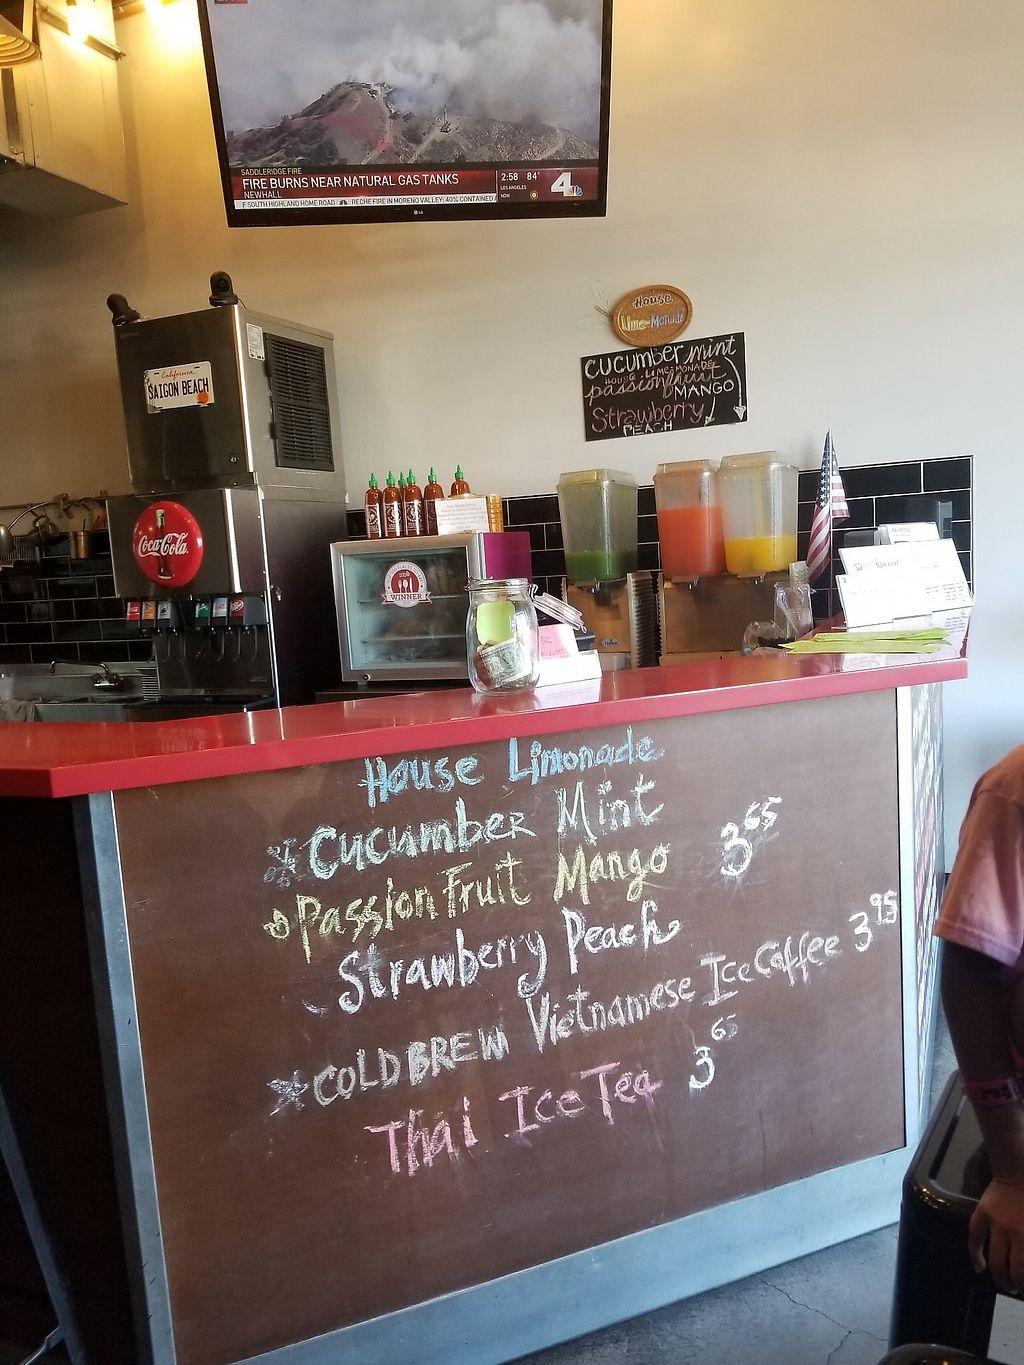 SADDLERIDGE FIRE
FIRE BURNS NEAR NATURAL GAS TANKS
NEWHALL
2:58 84°
LOS ANGELES
NOW
4
F SOUTH HIGHLAND HOME ROAD RECHE FIRE IN MORENO VALLEY: 40% CONTAINED
LG
House
Lime-Monade
Cucumber mint
HOUSE LIME-MONADE
passionfruit
MANGO
Strawberry
PEACH
California
SAIGON BEACH
Coca-Cola
WINNER
Special
House Limonade
Cucumber Mint
Passion Fruit Mango 3 65
Strawberry Peach
COLD BREW Vietnamese Ice Coffee 3 95
Thai Ice Tea 3 65